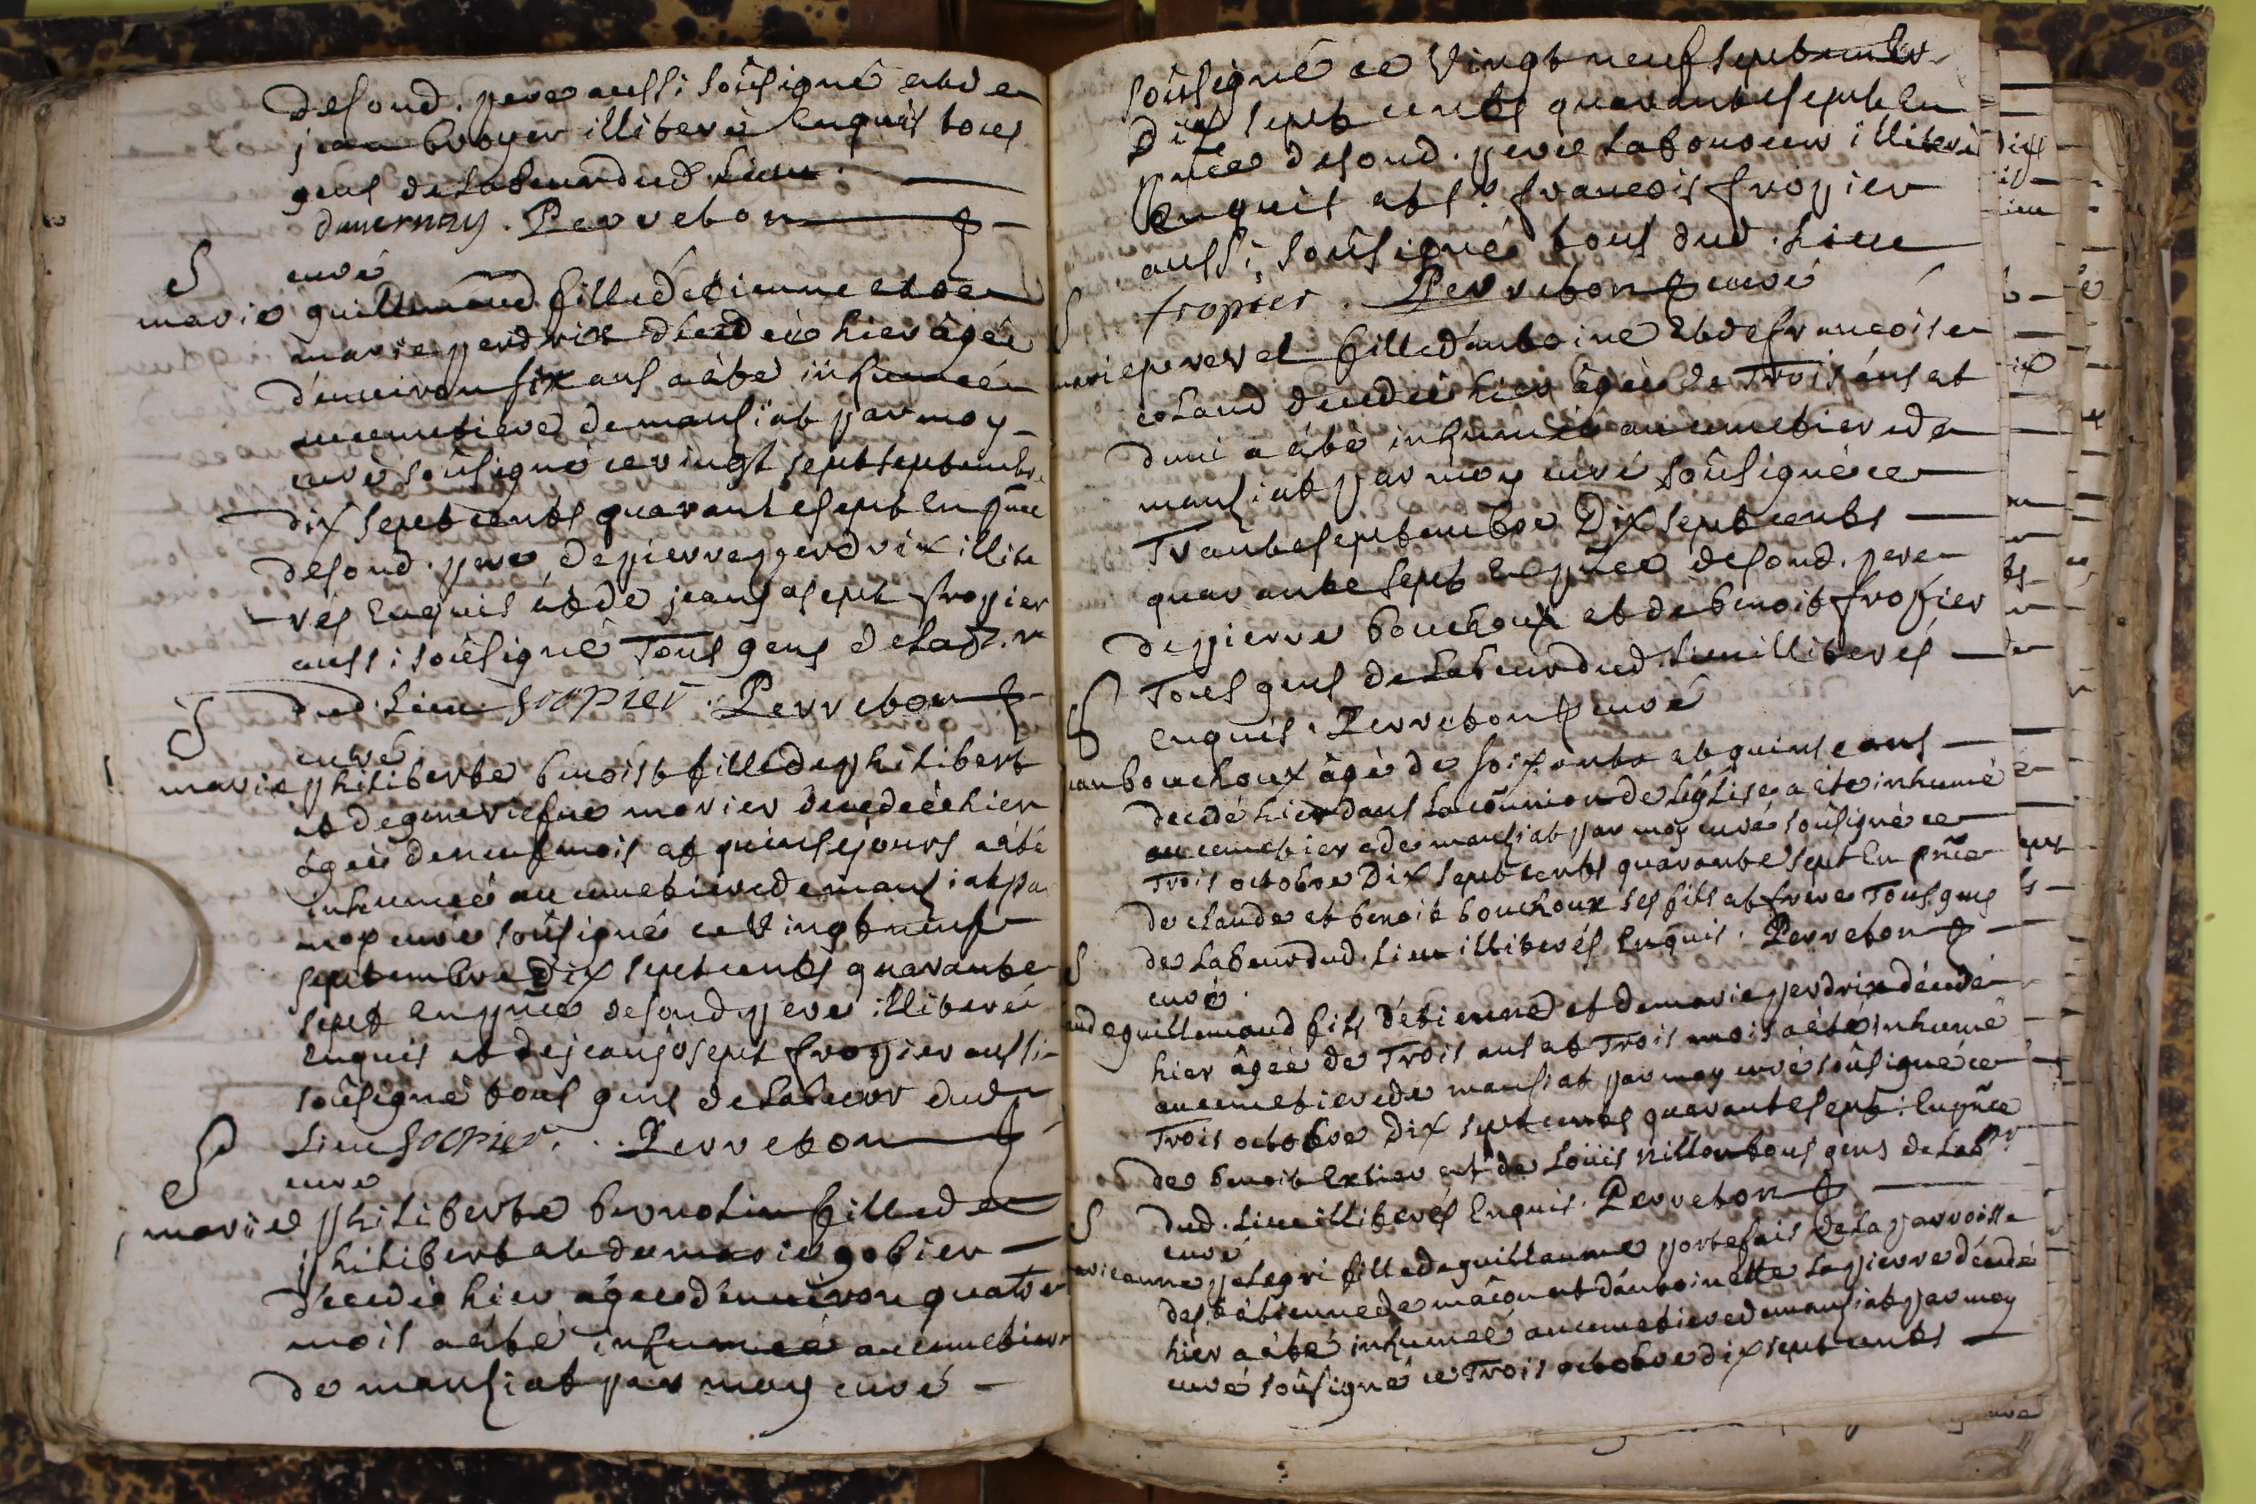 desond. pere aussi soûsigné et de
jean broyer illiteré enquis tous
gens de labeur dud lieu.
dauernay. Perreton
curé
S
marie guillemaud fille detienne et de
marie perdrix décedeé hier âgeé
d'enuiron six ans a êté inhumeé
au cemetiere de mansiat par moy
curé soûsigné ce vingt sept septembre
dix sept cents quarante sept en pñce
desond. pere, de pierre perdrix illite
rés enquis et de jean joseph fropier
aussi soûsigné Tous gens de lab.r
dud. lieu fropier. Perreton
S
curé
marie philiberte benoist fille de philibert
et de geneviefue morier decedeé hier
âgeé de neuf mois et quinse jours a êté
inhumeé au cemetiere de mansiat par
moy curé soûsigné ce Vingt neuf
septembre Dix sept cents quarante
sept en pñce desond pere illiteré
enquis et de jean joseph fropier aussi
soûsigné tous gens de labeur dud
lieu fropier. Perreton
S
curé
marie philiberte bernolin fille de
philibert et de marie gobier
décedeé hier âgeé d'enuiron quatre
mois a êté inhumeé au cemetiere
de mansiat par moy curé
soûsigné ce Vingt neuf septembre
Dix sept cents quarante sept En
pñce desond. pere laboureur illiteré
enquis et s.r francois fropier
aussi soûsigné tous dud. lieu
fropier. Perreton curé
S
marie peruel fille d'antoine et de francoise
coland decedeé hier âgeé de Trois ans et
demi a êté inhumeé au cemetiere de
mansiat par moy curé soûsigné ce
Trante septembre Dix sept cents
quarante sept en pñce desond. pere
de pierre bouchoux et de benoit fropier
Tous gens de labeur dud. lieu illiterés
enquis. Perreton curé
S
jean bouchoux âgé de soixante et quinse ans
decedé hier dans la cõmunion de l'église a été inhumé
au cemetiere de mansiat par moy curé soûsigné ce
Trois octobre Dix sept cents quarante sept En pñce
de claude et benoit bouchoux ses fils et frere Tous gens
de labeur dud. lieu illiterés enquis. Perreton
S
curé.
claude guillemaud fils d'etienne et de marie perdrix décedé
hier âgeé de Trois ans et Trois mois a êté inhumé
au cemetiere de mansiat par moy curé soûsigné ce
Trois octobre Dix sept cents quarante sept. En pñce
de benoit extier et de Loüis nillon tous gens de lab.r
dud. lieu illiterés Enquis. Perreton
S
curé
marie anne pelegri fille de guillaume portefais de la parroisse
de s.t étienne de mâcon et d'antoinette lapierre décedé
hier a êté inhumeé au cemetiere de mansiat par moy
curé soûsigné ce Trois octobre dix sept cents